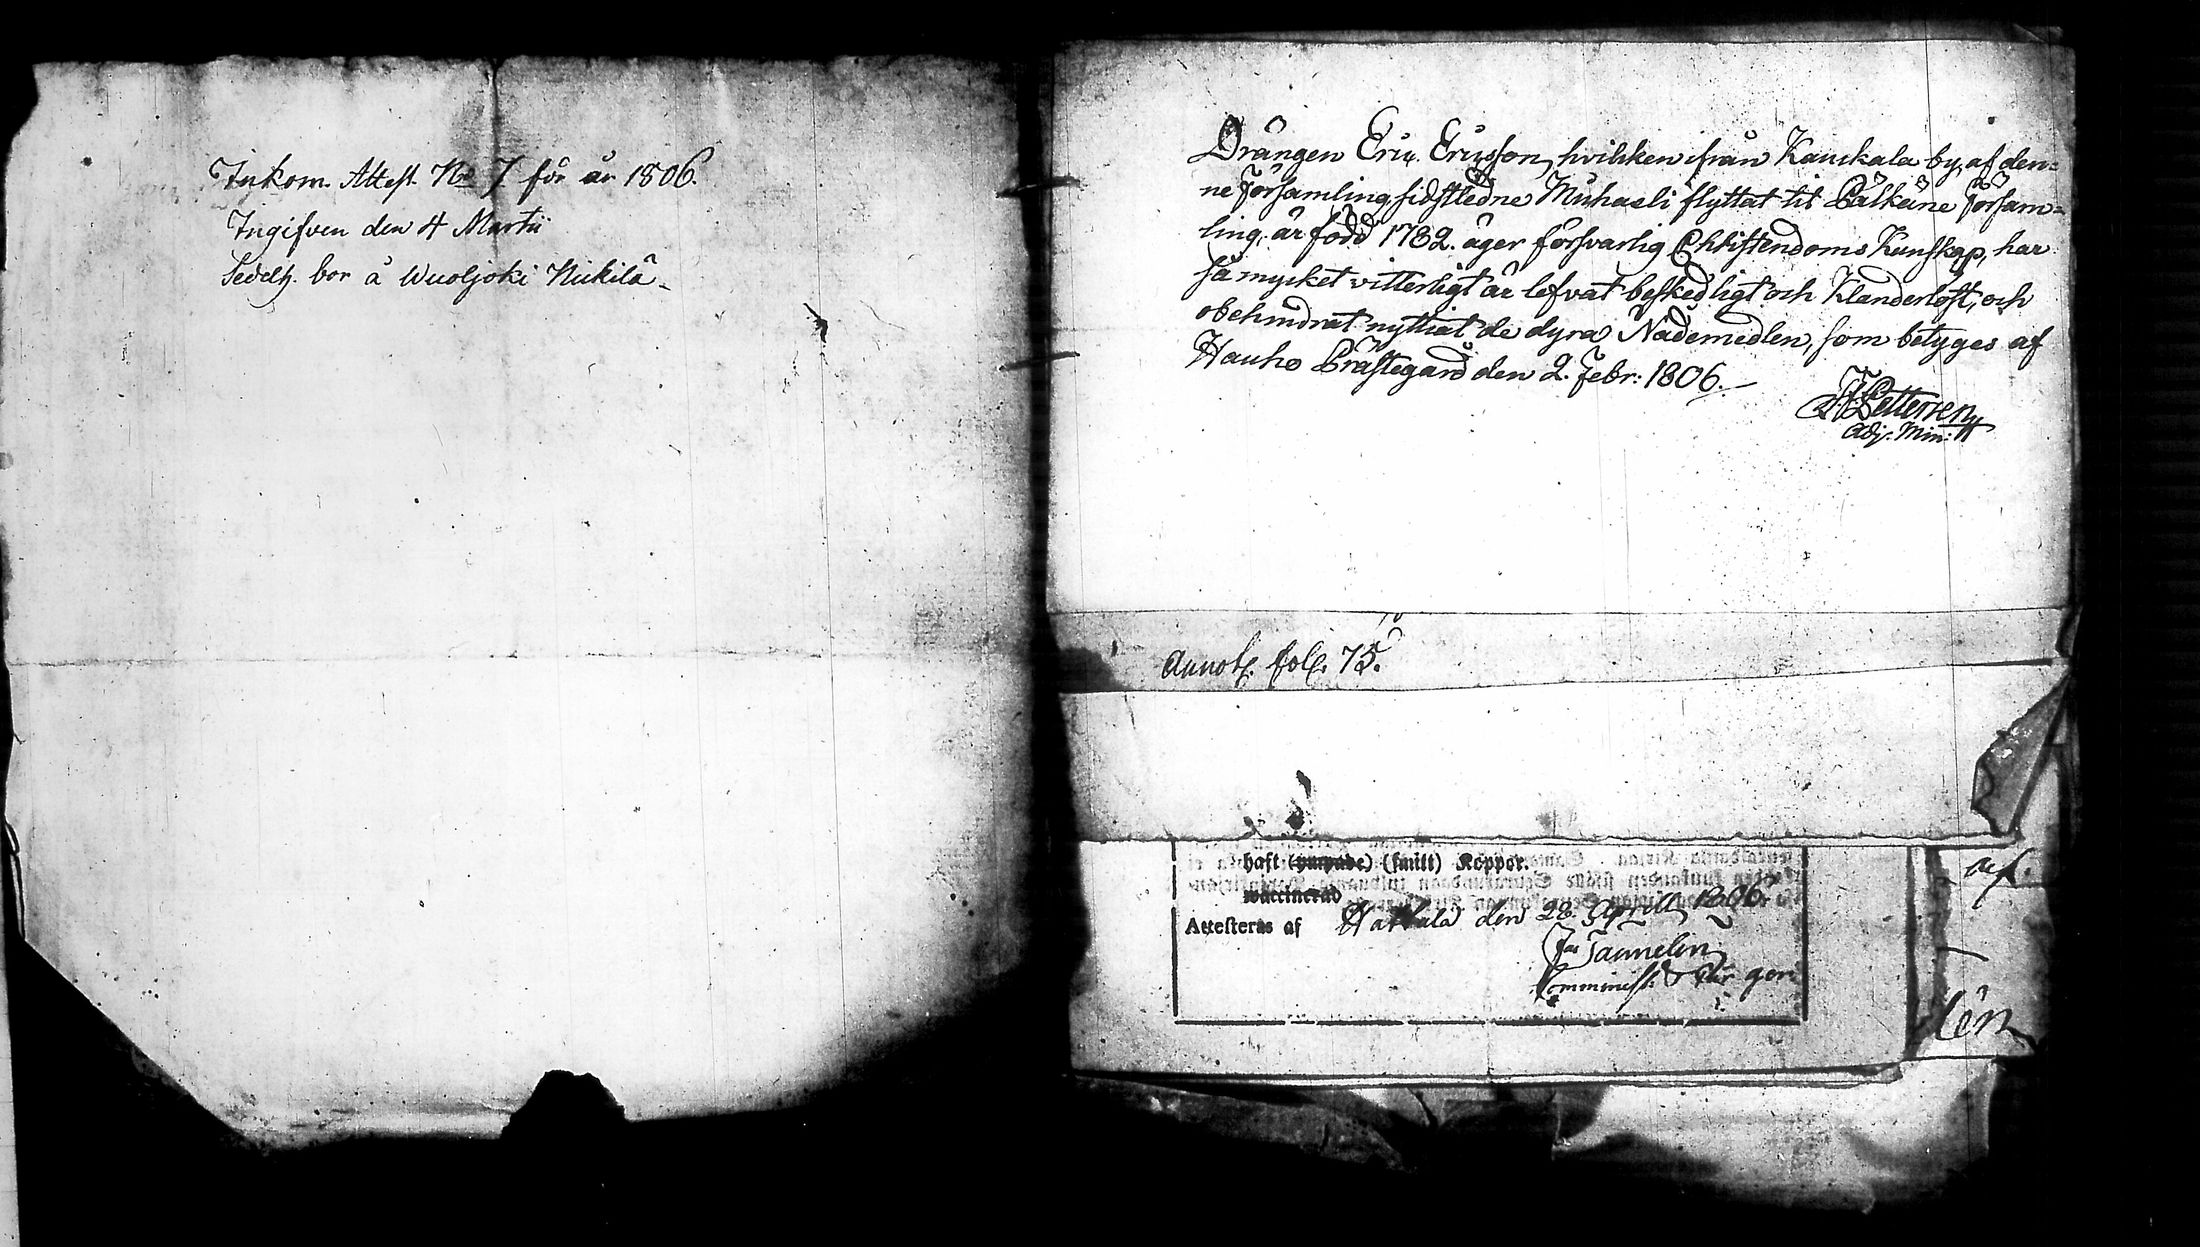 Inkom. Attest. No 7 för år 1806.
Ingifven den 4 Martii
Sedelh. bor å Wuoljoki Nickilä
Drängen Eric Ericsson, hvilcken ifrån Kauckala by, af den-
ne Församling sidstledne Michaeli flyttat til Pälkäne Församl-
ling, är född 1782. äger försvarlig Christendoms Kunskap, har
så mycket vitterligt är lefvat beskedligt och Klanderlöst, och
obehindrat nyttiat de dyra Nådemedlen, som betyges af
Hauho Prästegård den 2. Febr: 1806.
Petterson
Adj. Min:
Annot. fol. 75.
haft (ympade) (smitt) Koppor.
vaccinerad
Attesteras af Hattula den 28 Aprill 1806
Tammelin
Comminist:
af.